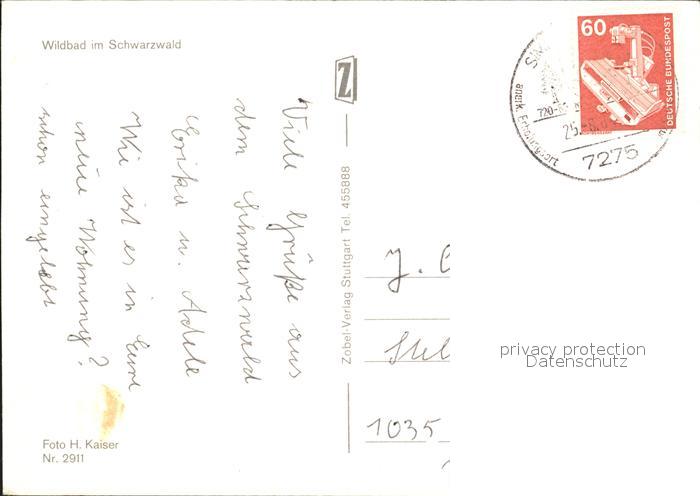 Wildbad im Schwarzwald
Viele Grüße aus
dem Schwarzwald
Erika u. Adele
Wie ist es in Eure
neue Wohnung?
schon eingelebt
Foto H. Kaiser
Nr. 2911
Z
Zobel-Verlag Stuttgart Tel. 455888
60
DEUTSCHE BUNDESPOST
anerk. Erholungsort
7275
J.
1035
privacy protection
Datenschutz